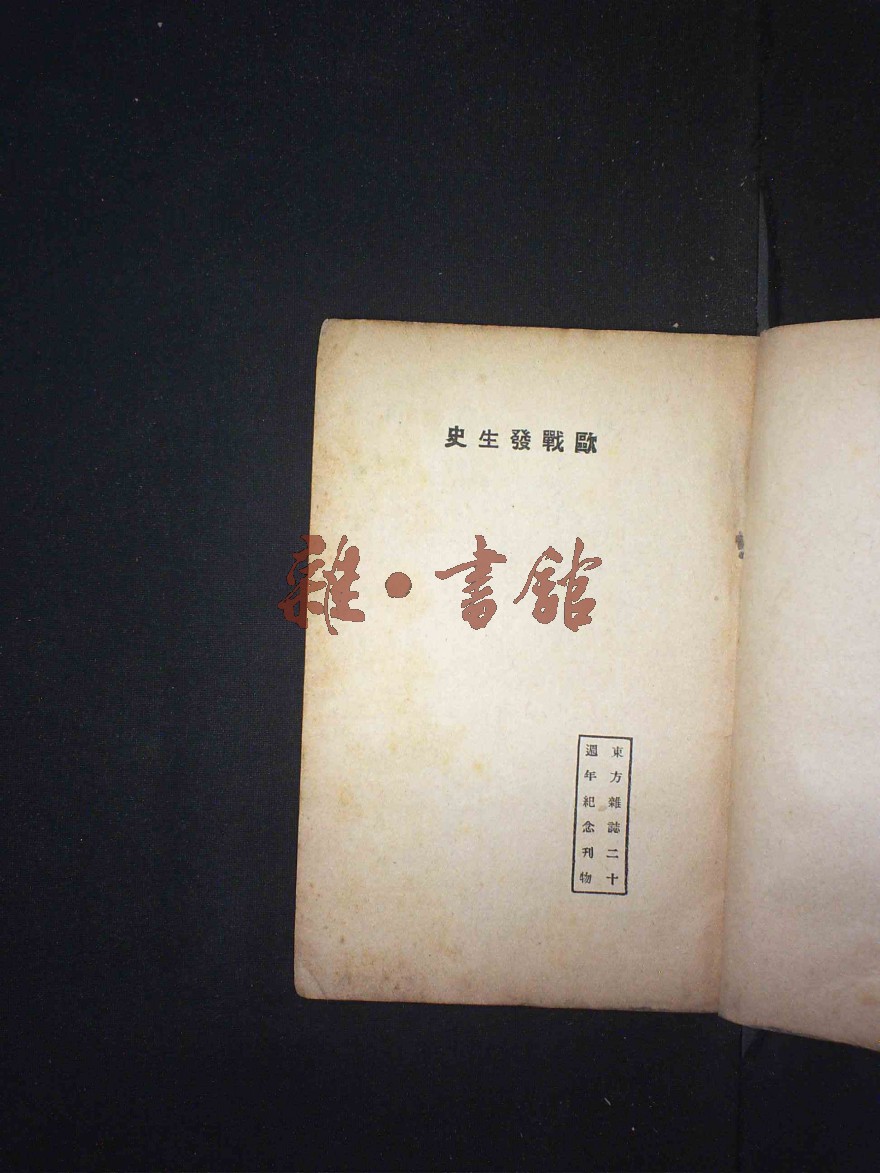 歐戰發生史
雜·書館
東方雜誌二十
週年紀念刊物